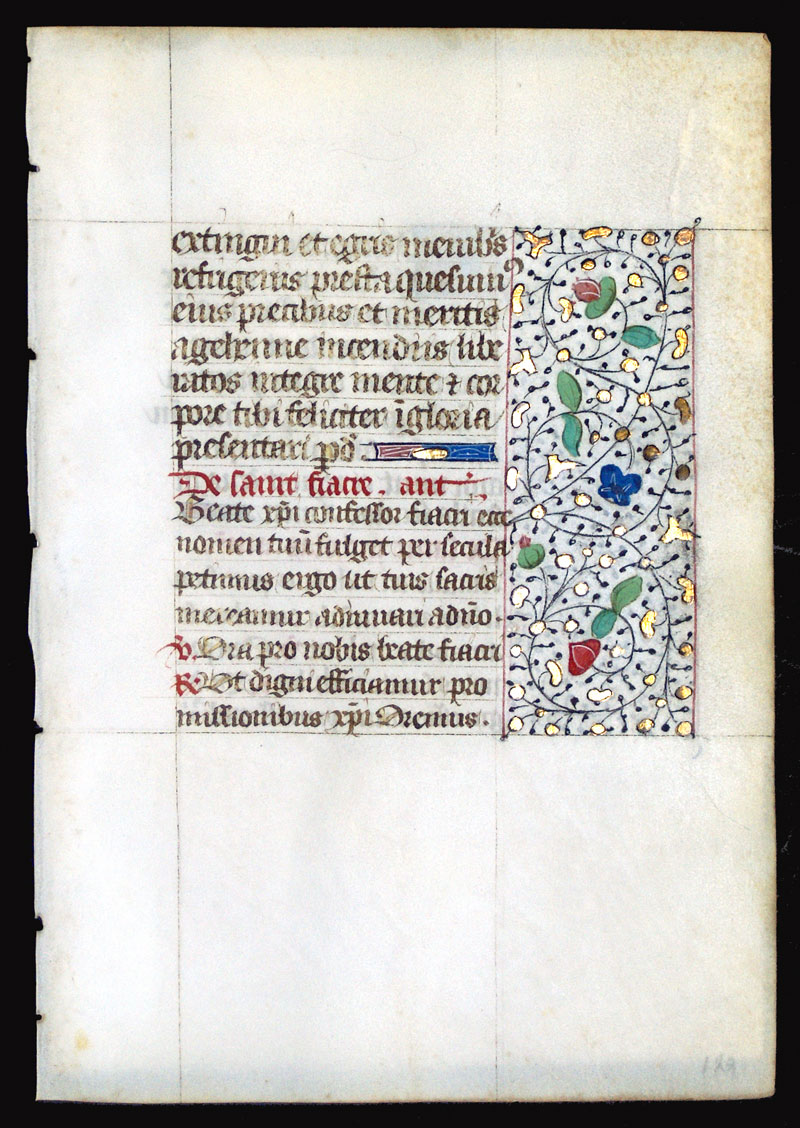 extingui et egris membris
refrigerius presta quesumus
eius precibus et meritis
a gehenne incendiis libe
ratos integre mente ⁊ cor
pore tibi feliciter ī gloria
presentari p̄ d̄
De saint fiacre. ant̄
Beate xp̄i confessor fiacri ecce
nomen tuū fulget per secula
petimus ergo ut tuis sacris
mereamur adiuuari ad n̄o.
℣. Ora pro nobis beate fiacri
℟. Vt digni efficiamur pro
missionibus xp̄i Oremus.